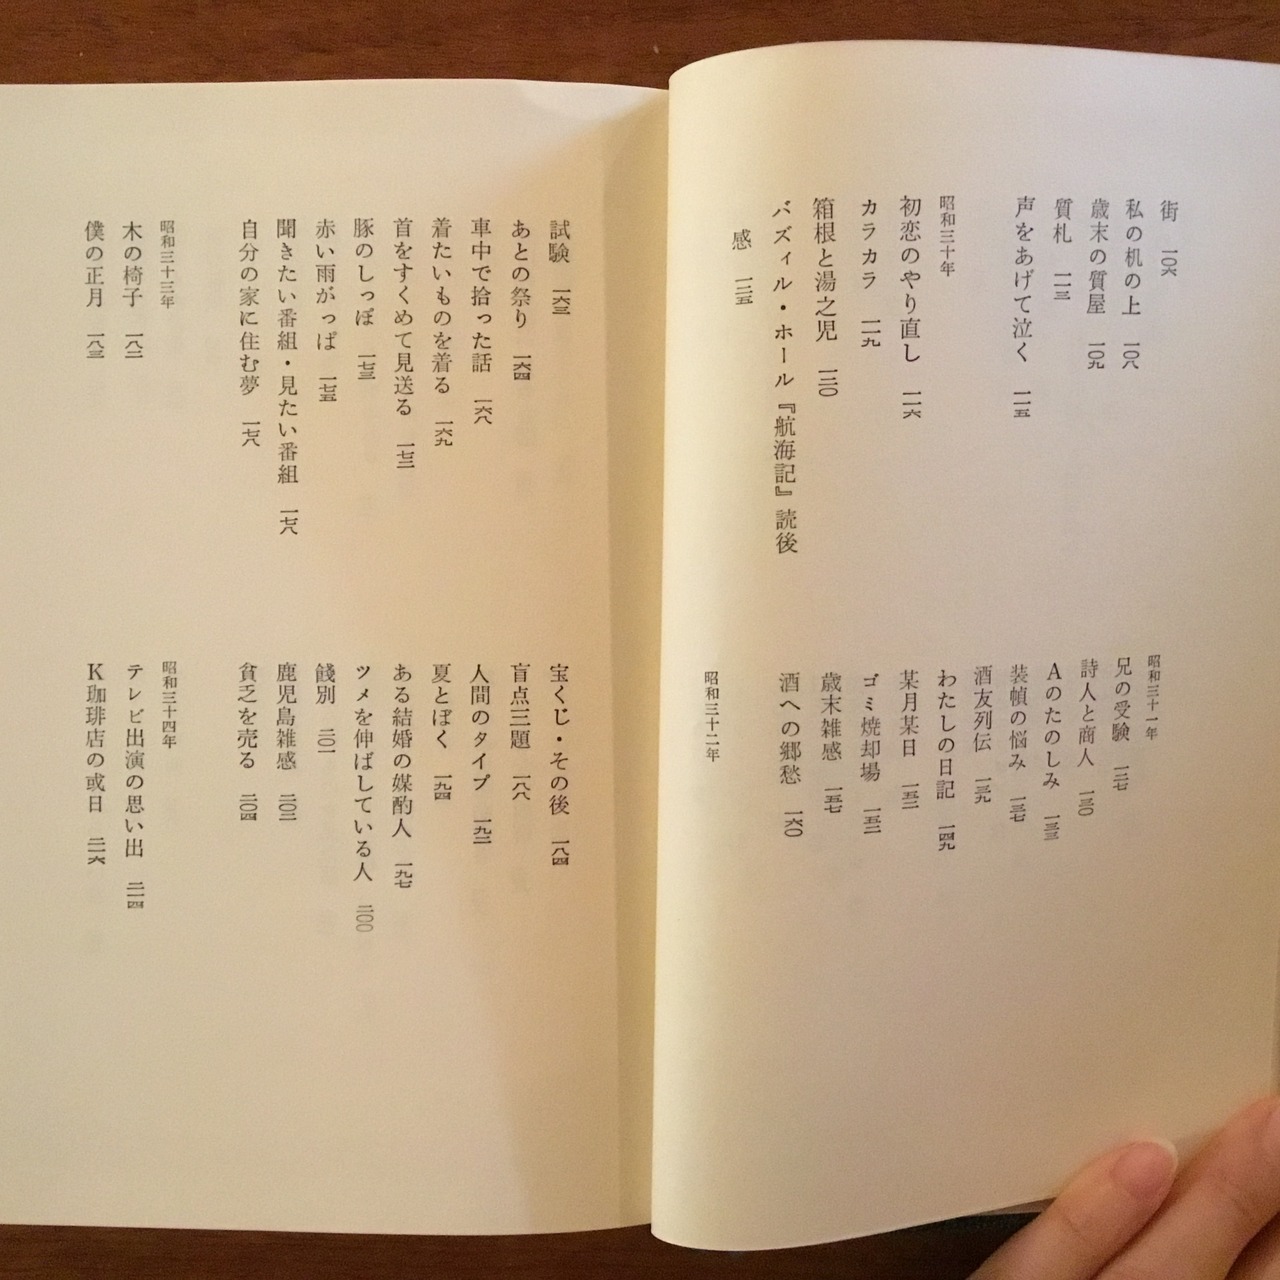 街 一〇六
私の机の上 一〇八
歳末の質屋 一〇九
質札 一一三
声をあげて泣く 一一五
昭和三十年
初恋のやり直し 一一六
カラカラ 一一九
箱根と湯之児 一二〇
バズィル・ホール『航海記』読後
感 一二五
昭和三十一年
兄の受験 一二七
詩人と商人 一三〇
Aのたのしみ 一三三
装幀の悩み 一三七
酒友列伝 一三九
わたしの日記 一四九
某月某日 一五二
ゴミ焼却場 一五二
歳末雑感 一五七
酒への郷愁 一六〇
昭和三十二年
試験 一六三
あとの祭り 一六四
車中で拾った話 一六八
着たいものを着る 一六九
首をすくめて見送る 一七二
豚のしっぽ 一七三
赤い雨がっぱ 一七五
聞きたい番組・見たい番組 一七八
自分の家に住む夢 一七八
昭和三十三年
木の椅子 一八二
僕の正月 一八三
宝くじ・その後 一八四
盲点三題 一八八
人間のタイプ 一九二
夏とぼく 一九四
ある結婚の媒酌人 一九七
ツメを伸ばしている人 二〇〇
餞別 二〇一
鹿児島雑感 二〇二
貧乏を売る 二〇四
昭和三十四年
テレビ出演の思い出 二一四
K珈琲店の或日 二一六